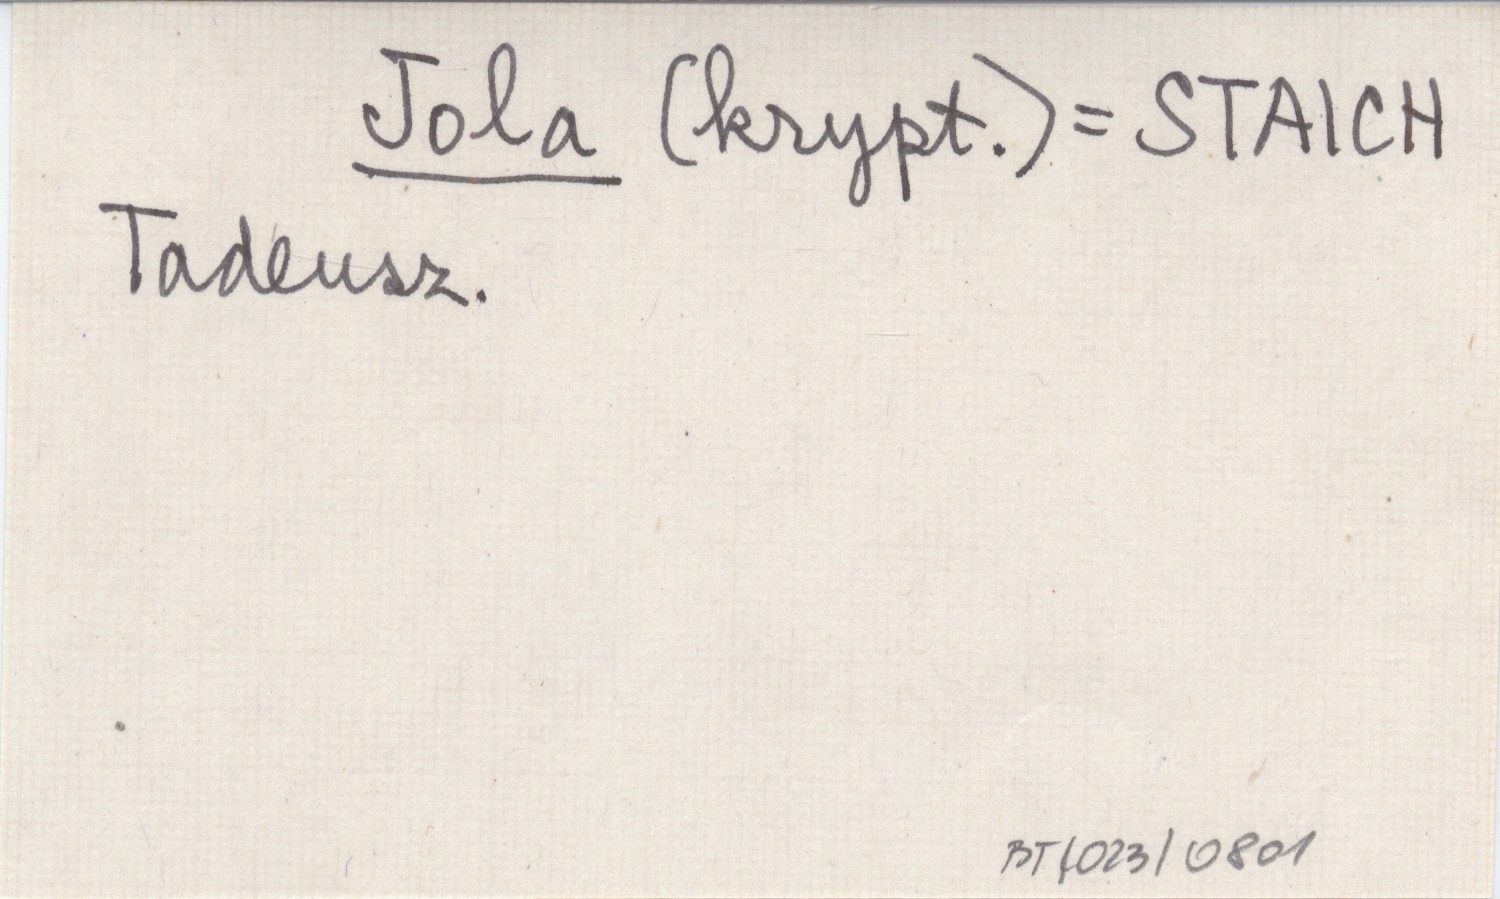 Jola (krypt.) = STAICH
Tadeusz.
BT/023/0801